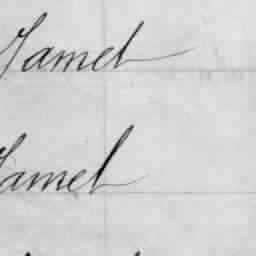 Hamel
Hamel